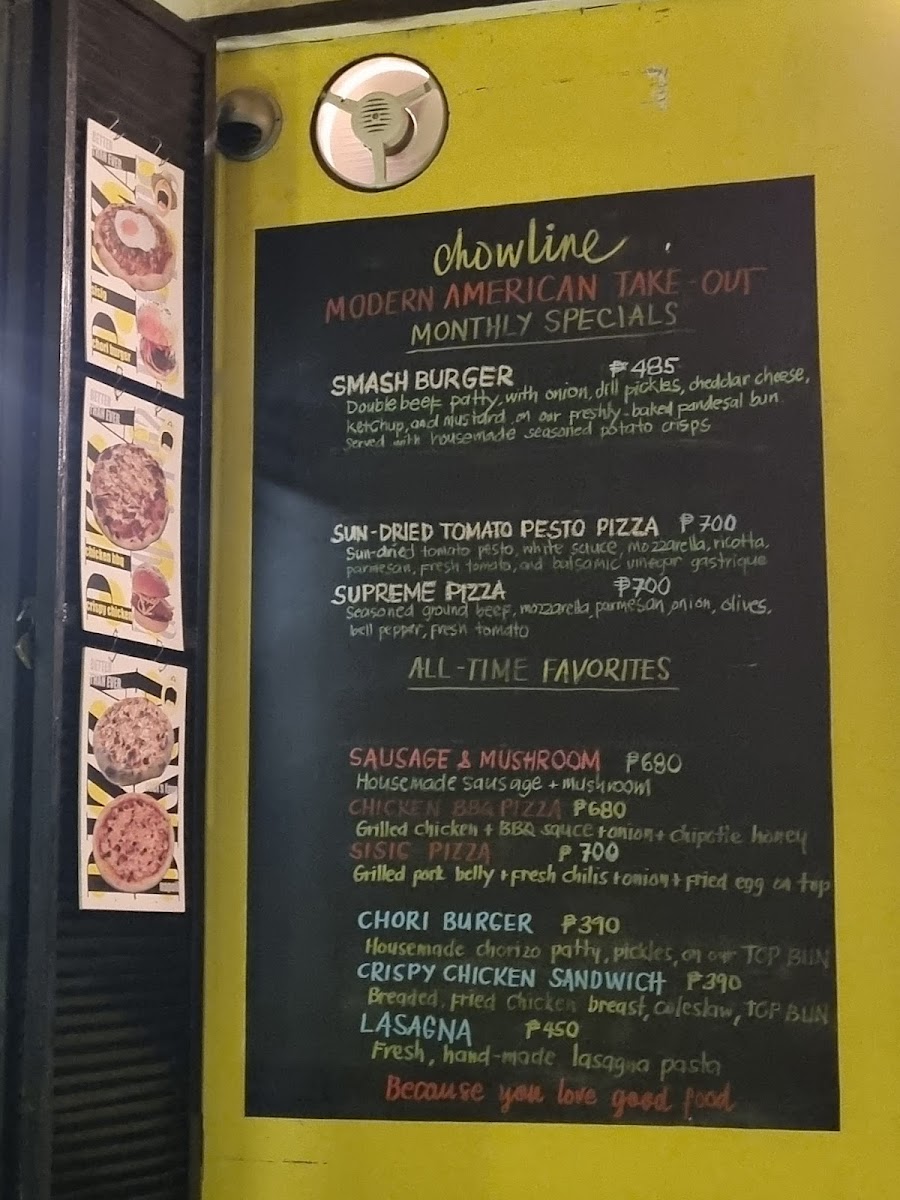 chowline
MODERN AMERICAN TAKE-OUT
MONTHLY SPECIALS
SMASH BURGER ₱485
Double beef patty, with onion, dill pickles, cheddar cheese,
ketchup, and mustard on our freshly-baked pandesal bun.
Served with housemade seasoned potato crisps
SUN-DRIED TOMATO PESTO PIZZA ₱700
Sun-dried tomato pesto, white sauce, mozzarella, ricotta,
parmesan, fresh tomato, and balsamic vinegar gastrique
SUPREME PIZZA ₱700
Seasoned ground beef, mozzarella, parmesan, onion, olives,
bell pepper, fresh tomato
ALL-TIME FAVORITES
SAUSAGE & MUSHROOM ₱680
Housemade sausage + mushroom
CHICKEN BBQ PIZZA ₱680
Grilled chicken + BBQ sauce + onion + chipotle honey
SISIG PIZZA ₱700
Grilled pork belly + fresh chilis + onion + fried egg on top
CHORI BURGER ₱390
Housemade chorizo patty, pickles, on our TOP BUN
CRISPY CHICKEN SANDWICH ₱390
Breaded, fried chicken breast, coleslaw, TOP BUN
LASAGNA ₱450
Fresh, hand-made lasagna pasta
Because you love good food
BETTER
THAN EVER
sisig
chori burger
BETTER
THAN EVER
chicken bbq
crispy chicken
BETTER
THAN EVER